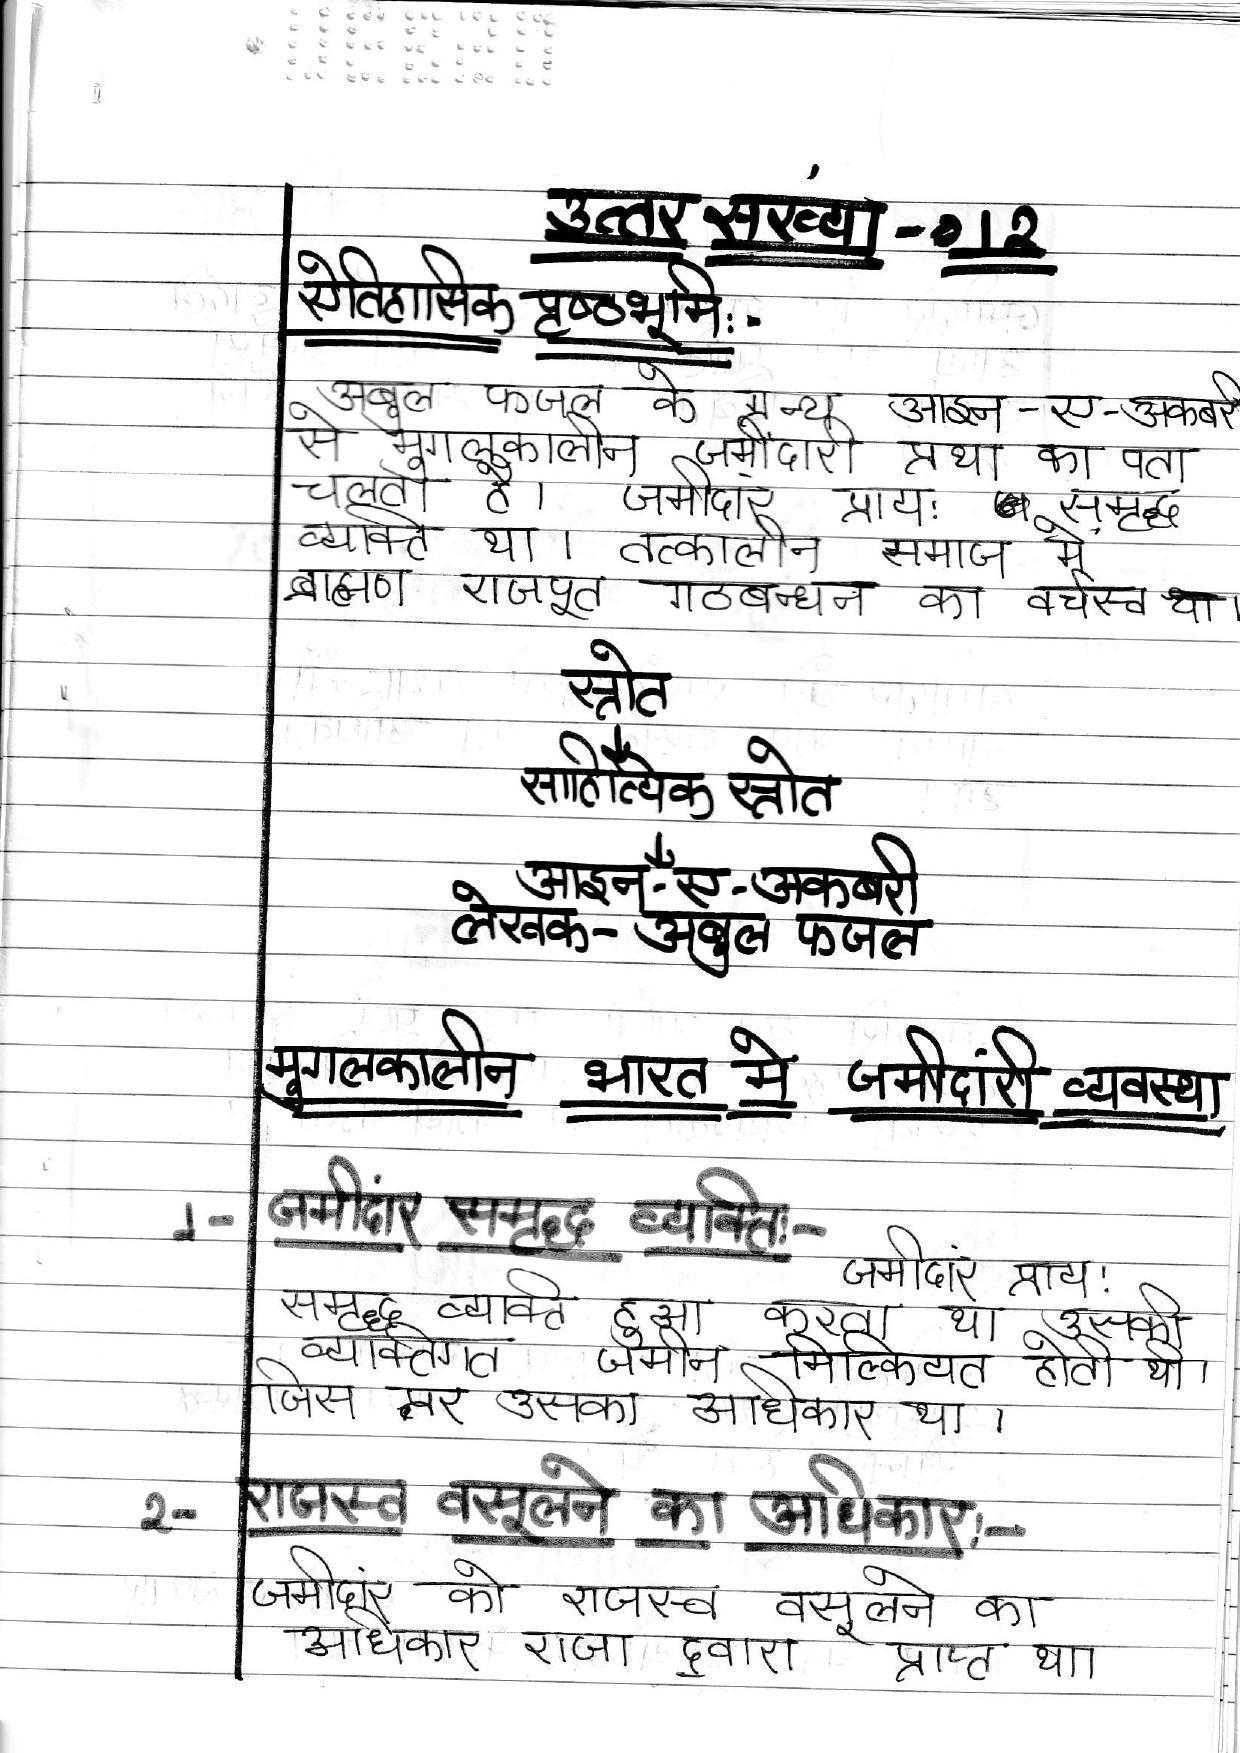 उत्तर संख्या - 12
ऐतिहासिक प्रष्ठभूमि:-
अबुल फजल के ग्रन्थ आइन - ए - अकबरी
से मुगलकालीन जमींदारी प्रथा का पता
चलता है। जमीदांर प्रायः समृद्ध
व्यक्ति था। तत्कालीन समाज मे
ब्राह्मण राजपूत गठबन्धन का वर्चस्व था।
स्त्रोत
↓
साहित्यिक स्त्रोत
↓
आइन - ए - अकबरी
लेखक - अबुल फजल
मुगलकालीन भारत मे जमीदांरी व्यवस्था
1- जमीदांर समृद्ध व्यक्ति:-
जमीदांर प्राय:
समृद्ध व्यक्ति हुआ करता था उसकी
व्यक्तिगत जमीन मिल्कियत होती थी।
जिस पर उसका अधिकार था।
2- राजस्व वसूलने का अधिकार:-
जमीदांर को राजस्व वसूलने का
अधिकार राजा द्वारा प्राप्त था।